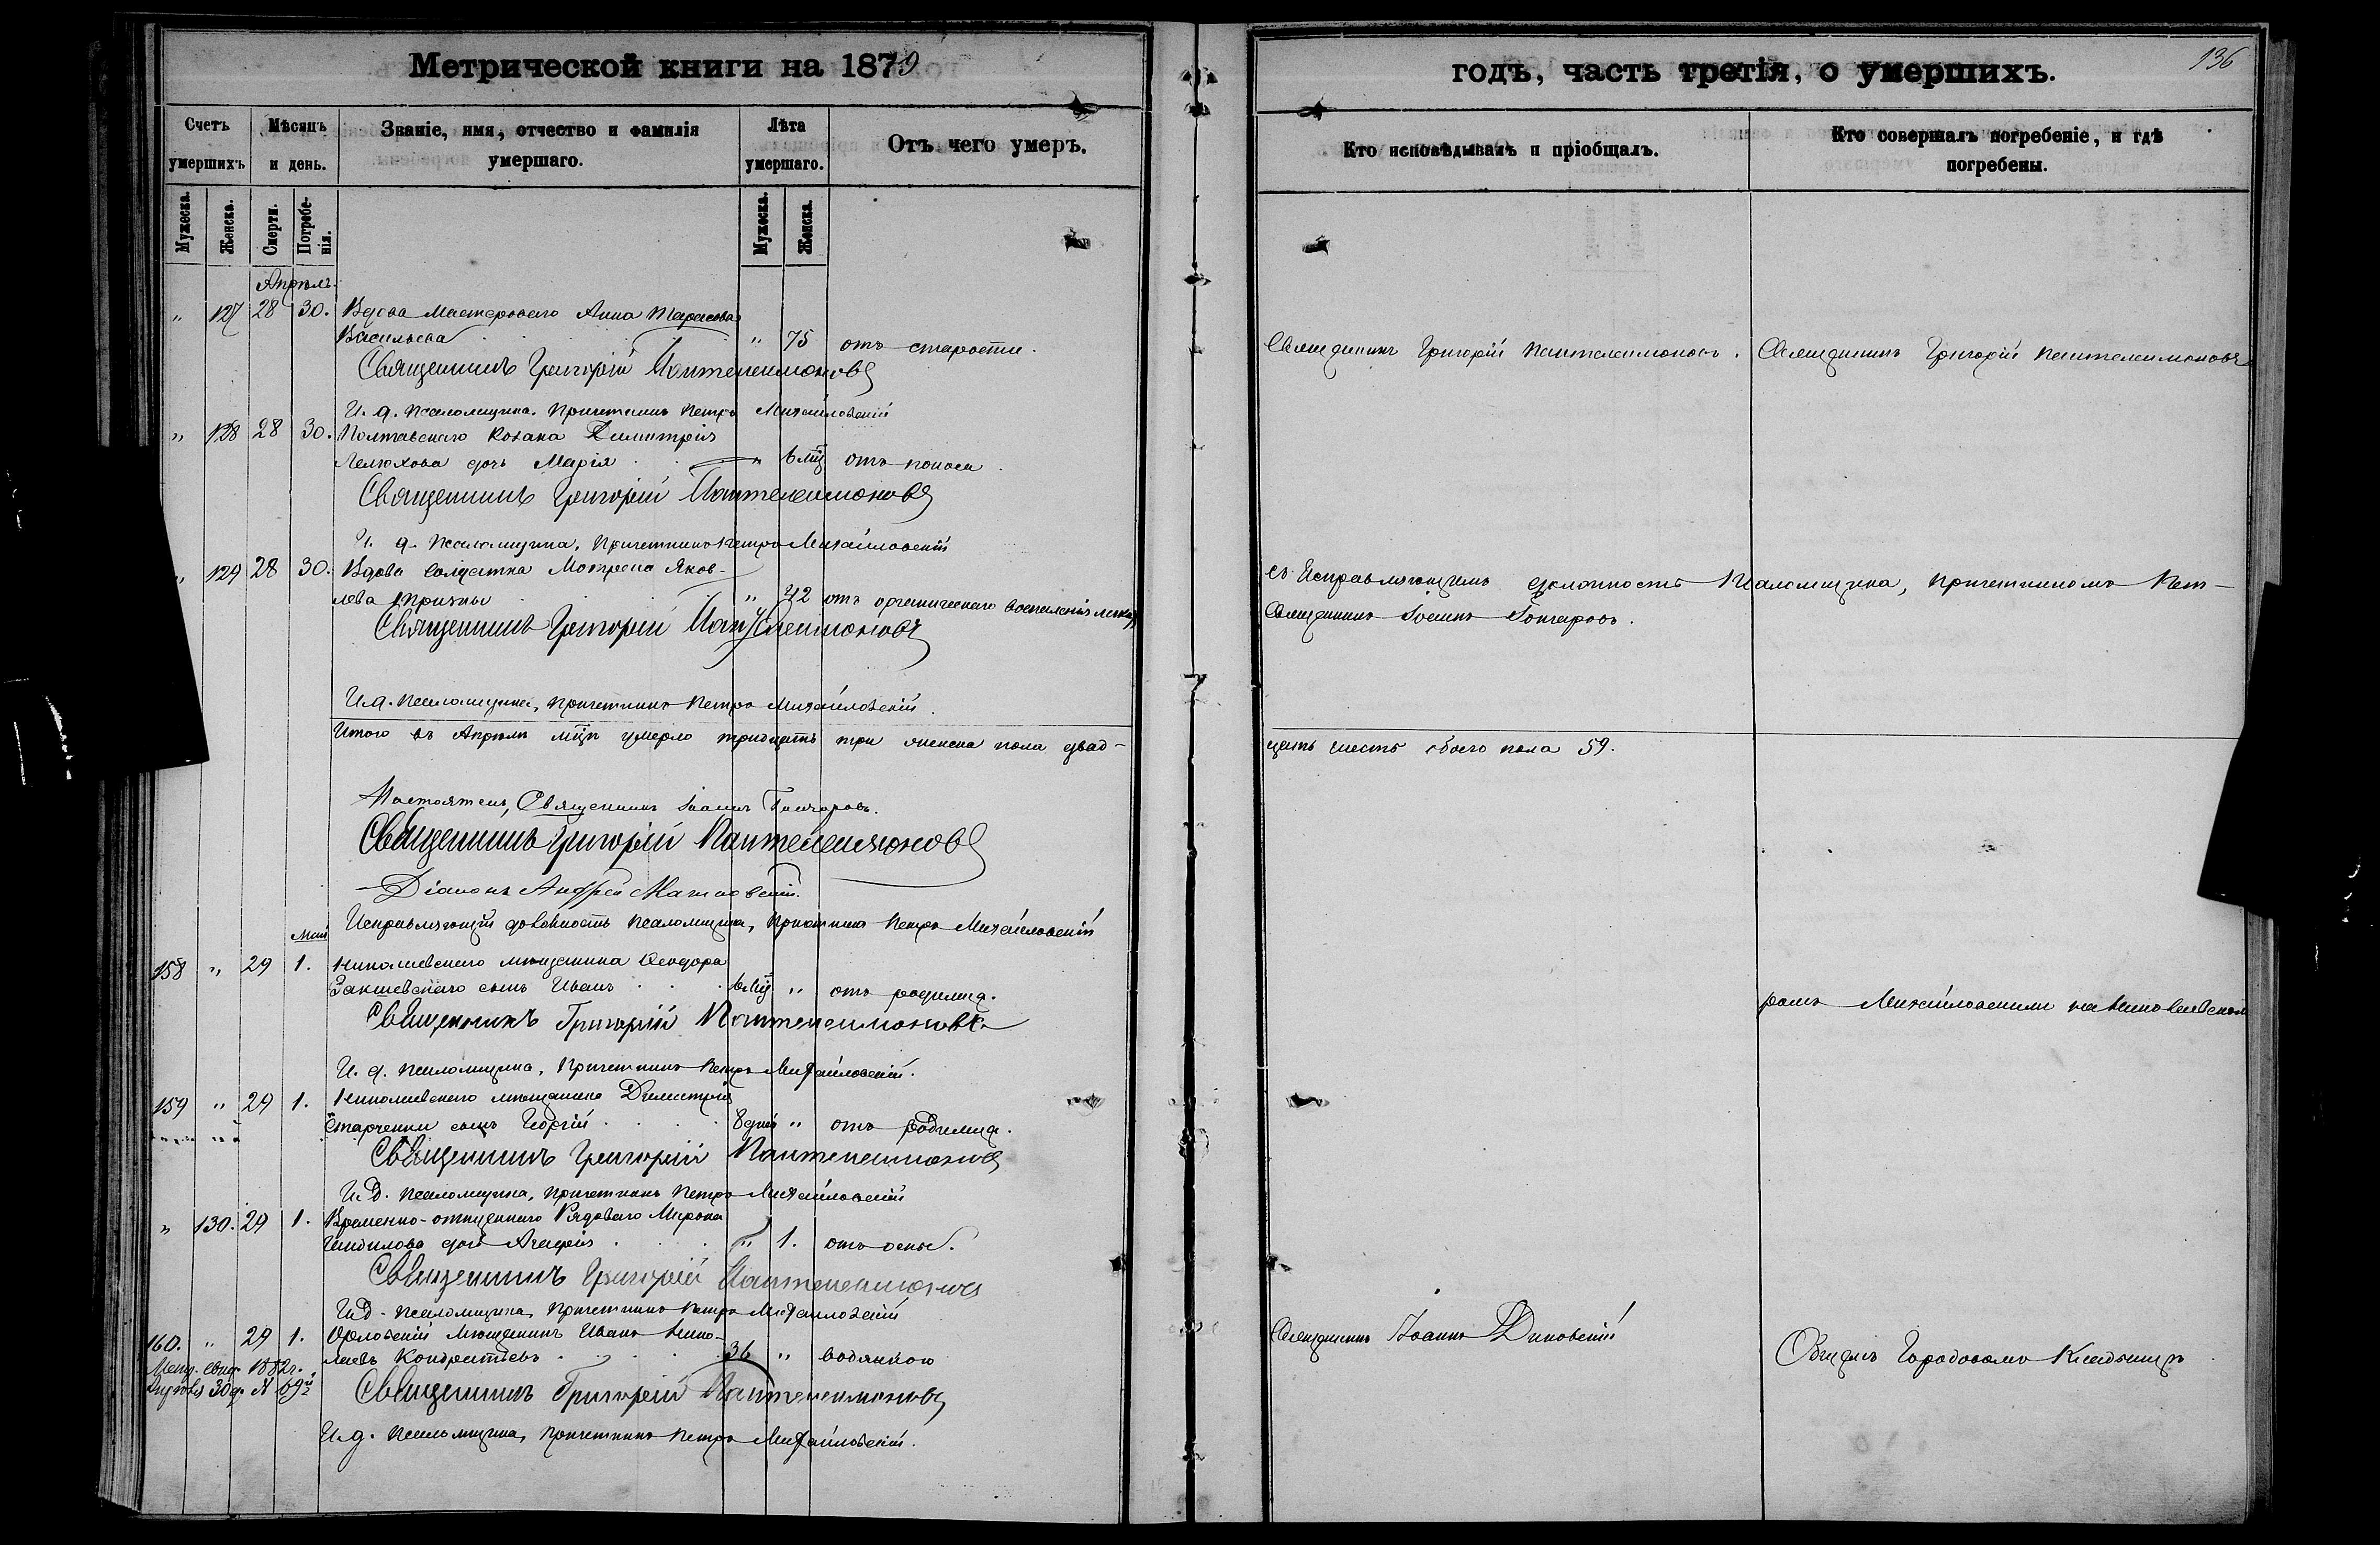 Метрической книги на 1879
годъ, часть третія, о умершихъ.
136
Счетъ умершихъ
Мѣсяцъ и день.
Званіе, имя, отчество и фамилія умершаго.
Лѣта умершаго.
Отъ чего умеръ.
Кто исповѣдывалъ и пріобщалъ.
Кто совершалъ погребеніе, и гдѣ погребены.
Мужеска.
Женска.
Смерти.
Погребенія.
Мужеска.
Женска.
Апрѣль.
" 127 28 30. Вдова мастероваго Анна Тарасова
Васильева " 75 отъ старости.
Священникъ Григорій Пантелеимоновъ.
Священникъ Григорій Пантелеимоновъ
Священникъ Григорій Пантелеимоновъ
И. д. псаломщика, Причетникъ Петръ Михайловскій
" 128 28 30. Полтавскаго козака Димитрія
Лелюхова дочь Марія " 6 мц отъ поноса.
Священникъ Григорій Пантелеимоновъ
И. д. псаломщика, Причетникъ Петръ Михайловскій
" 129 28 30. Вдова солдатка Матрона Яков-
лева " 42 отъ органическаго воспаленія легкихъ
съ Исправляющимъ должность Псаломщика, причетникомъ Пет-
Священникъ Іоаннъ Гончаровъ.
Священникъ Григорій Пантелеимоновъ
И.д. псаломщика, причетникъ Петръ Михайловскій.
Итого въ Апрѣлѣ мцѣ умерло тридцать три женска пола двад-
цать шесть обоего пола 59.
Настоятель, Священникъ Іоаннъ Гончаровъ.
Священникъ Григорій Пантелеимоновъ
Діаконъ Андрей
Исправляющій должность псаломщика, Причетникъ Петръ Михайловскій
Май
158 " 29 1. Николаевскаго мѣщанина Ѳеодора
сынъ Иванъ 6 мц " отъ родимца.
ромъ Михайловскимъ на Николаевскомъ
Священникъ Григорій Пантелеимоновъ
И. д. псаломщика, Причетникъ Петръ Михайловскій.
159 " 29 1. Николаевскаго мѣщанина Димитрія
Старченки сынъ Георгій 8 дней " отъ родимца.
Священникъ Григорій Пантелеимоновъ
И.д. псаломщика, причетникъ Петръ Михайловскій
" 130. 29 1. Временно-отпускнаго Рядоваго Мирона
дочь Агафія " 1. отъ оспы.
Священникъ Григорій Пантелеимоновъ
И.д. псаломщика, Причетникъ Петръ Михайловскій
160. " 29 1. Орловскій мѣщанинъ Иванъ Нико-
лаевъ Кондратьевъ 36 " водянкою
Священникъ Іоаннъ Диковскій
Общемъ Городовомъ Кладбищѣ
Метр. свид. 1882 г.
30 д. №
Священникъ Григорій Пантелеимоновъ
И.д. псаломщика, причетникъ Петръ Михайловскій.